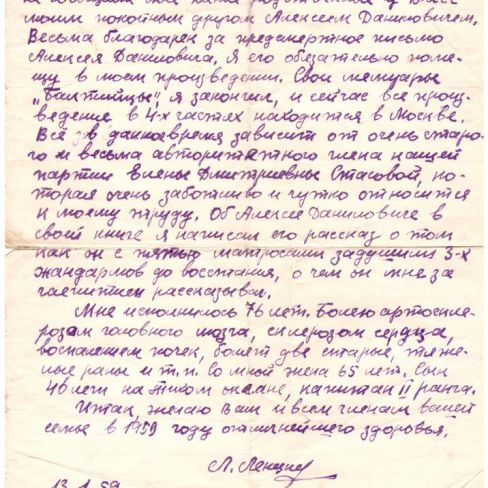 моим покойным другом Алексеем Даниловичем.
Весьма благодарен за предсмертное письмо
Алексея Даниловича. Я его обязательно поме-
щу в моем произведении. Свои мемуары
„Балтийцы", я закончил, и сейчас все произ-
ведение в 4-х частях находится в Москве.
Все в данное время зависит от очень старо-
го и весьма авторитетного члена нашей
партии Елены Дмитриевны Стасовой, ко-
торая очень заботливо и чутко относится
к моему труду. Об Алексее Даниловиче в
своей книге я написал его рассказ о том
как он с пятью матросами задушили 3-х
жандармов до восстания, о чем он мне за
чаепитием рассказывал.
Мне исполнилось 76 лет. Болею артоскле-
розом головного мозга, склерозом сердца,
воспалением почек, болят две старые, тяже-
лые раны и т.п. Со мной жена 65 лет. Сын
40 лет на тихом океане, капитан II ранга.
Итак, желаю Вам и всем членам вашей
семье в 1959 году отличнейшего здоровья.
13.1.59